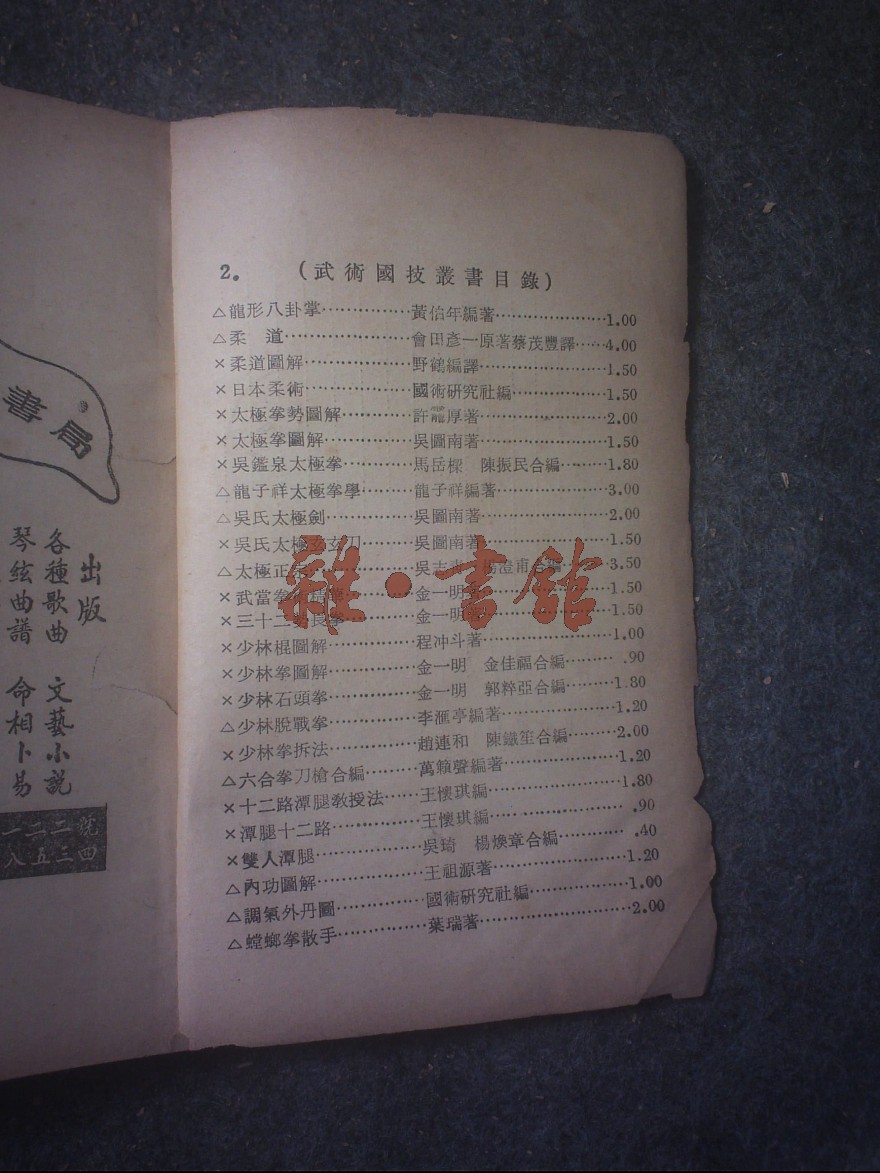 2. （武術國技叢書目錄）
△龍形八卦掌……………黃伯年編著…………………1.00
△柔　道…………………會田彥一原著蔡茂豐譯……4.00
×柔道圖解………………野鶴編譯……………………1.50
×日本柔術………………國術研究社編………………1.50
×太極拳勢圖解…………許龗厚著……………………2.00
×太極拳圖解……………吳圖南著……………………1.50
×吳鑑泉太極拳…………馬岳樑　陳振民合編………1.80
△龍子祥太極拳學………龍子祥編著…………………3.00
△吳氏太極劍……………吳圖南著……………………2.00
×吳氏太極玄玄刀………吳圖南著……………………1.50
△太極正宗………………吳志青　楊澄甫合編………3.50
×武當拳術……金一明……1.50
×三十二勢長拳…………金一明著……………………1.50
×少林棍圖解……………程冲斗著……………………1.00
×少林拳圖解……………金一明　金佳福合編……… .90
×少林石頭拳……………金一明　郭粹亞合編………1.80
△少林脫戰拳……………李滙亭編著…………………1.20
×少林拳拆法……………趙連和　陳鐵笙合編………2.00
△六合拳刀槍合編………萬籟聲編著…………………1.20
×十二路潭腿教授法……王懷琪編……………………1.80
×潭腿十二路……………王懷琪編…………………… .90
×雙人潭腿………………吳琦　楊煥章合編………… .40
△內功圖解………………王祖源著……………………1.20
△調氣外丹圖……………國術研究社編………………1.00
△螳螂拳散手……………葉瑞著………………………2.00
書局
出版
各種歌曲　文藝小說
琴絃曲譜　命相卜易
號二二一
四三五八
雜·書館